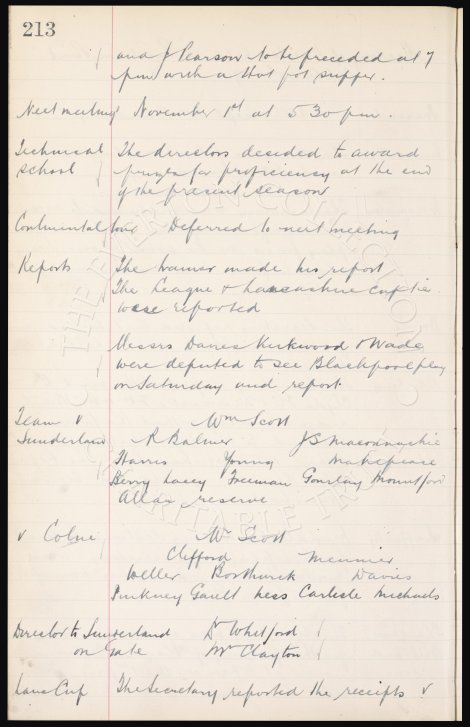 213
and J Pearson to be preceded at 7
pm with a Hot pot supper.
Next meeting November 1st at 5 30 pm.
Technical The directors decided to award
school prizes for proficiency at the end
of the present season
Continental tour Deferred to next meeting
Reports The trainer made his report
The League & Lancashire Cup tie
were reported
Messrs Davies Kirkwood & Wade
were deputed to see Blackpool play
on Saturday and report.
Team v Wm Scott
Sunderland R Balmer JS Maconnachie
Harris Young Makepeace
Berry Lacey Freeman Gourlay Mountford
Allan reserve
v Colne Wm Scott
Clifford Meunier
Weller Borthwick Davies
Pinkney Gault Hess Carlisle Michaels
Director to Sunderland Dr Whitford
on Gate Mr Clayton
Lancs Cup The Secretary reported the receipts v
THE EVERTON COLLECTION
CHARITABLE TRUST